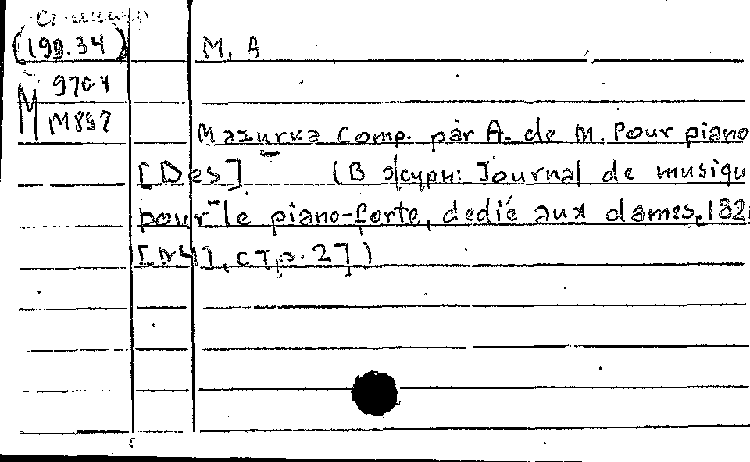 (199.34) M. A
M 970-4
M857
Mazurka comp. par A. de M. Pour piano
[Des] (В журн: Journal de musiqu
pour le piano-forte, dedié aux dames, 182
[N4], стр. 27)